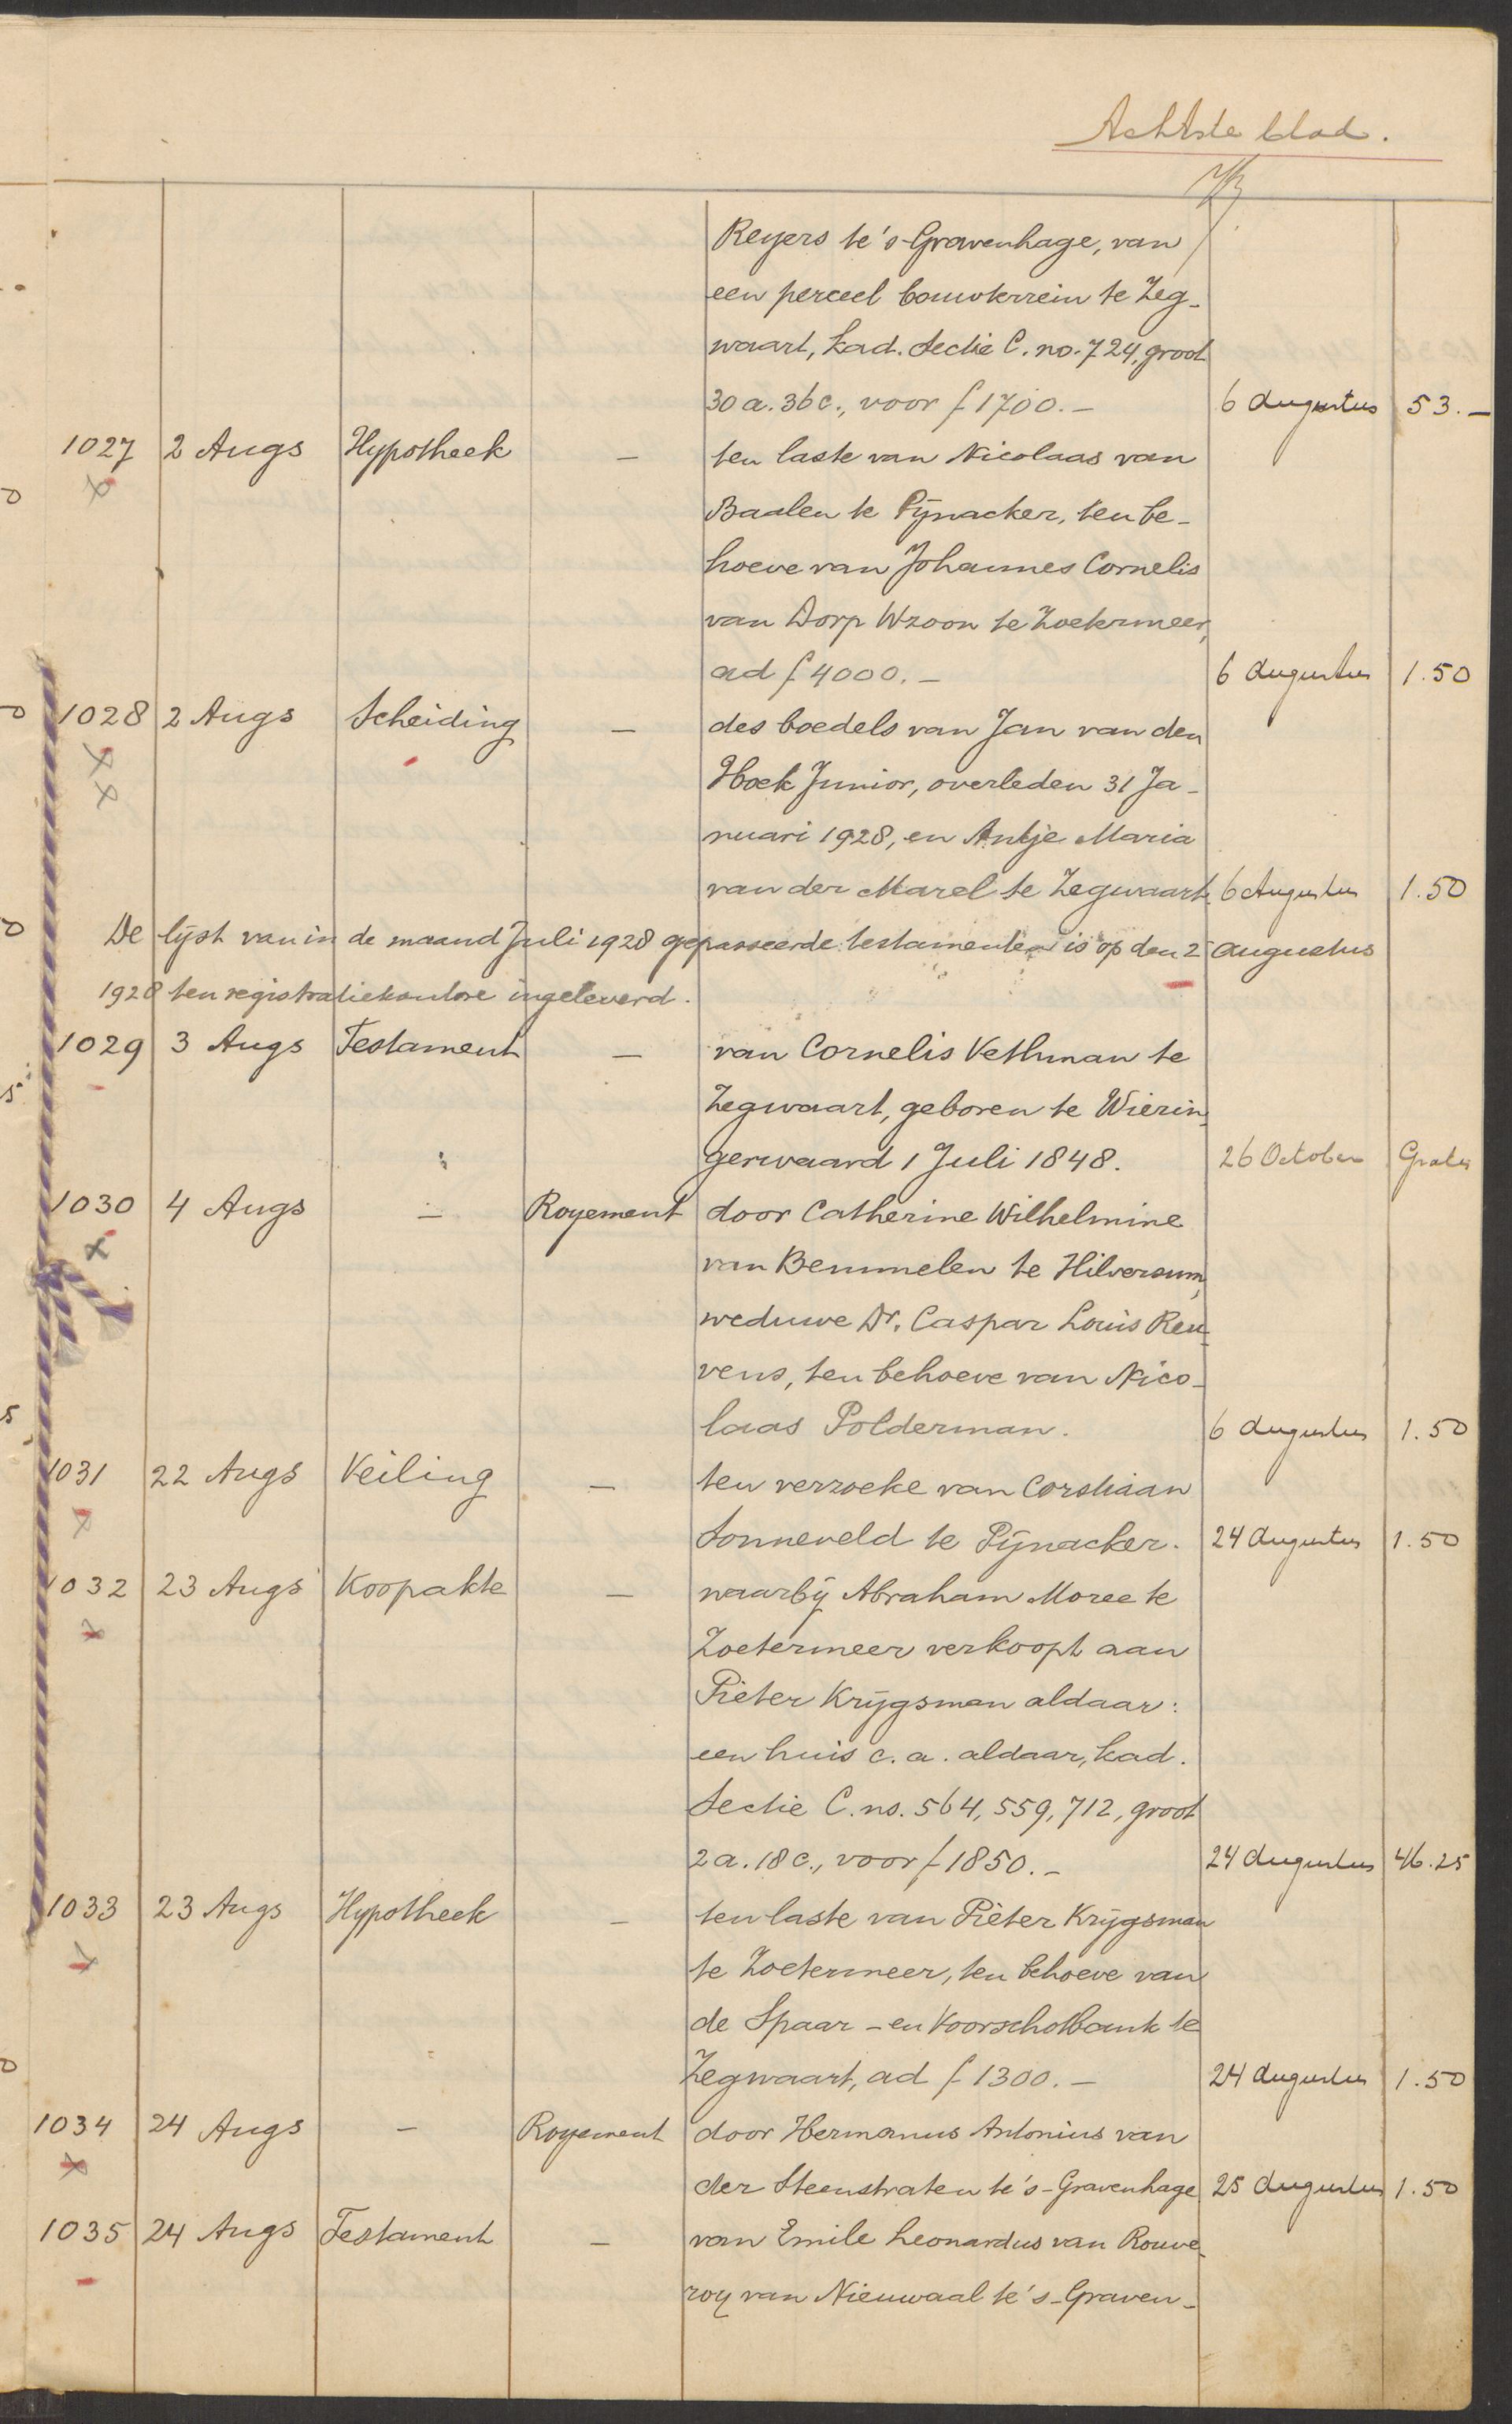 Achtste blad.
Reyers te 's-Gravenhage, van
een perceel bouwterrein te Zeg-
waart, kad. Sectie C. no. 724, groot
30 a. 36 c., voor f 1700.- 6 Augustus 53.-
1027 2 Augs Hypotheek - ten laste van Nicolaas van
Baalen te Pijnacker, ten be-
hoeve van Johannes Cornelis
van Dorp Wzoon te Zoetermeer,
ad f 4000.- 6 Augustus 1.50
1028 2 Augs Scheiding - des boedels van Jan van den
Hoek Junior, overleden 31 Ja-
nuari 1928, en Antje Maria
van der Marel te Zegwaart. 6 Augustus 1.50
De lijst van in de maand Juli 1928 gepasseerde testamenten is op den 2 Augustus
1928 ten registratiekantore ingeleverd.
1029 3 Augs Testament - van Cornelis Vethman te
Zegwaart, geboren te Wierin-
gerwaard 1 Juli 1848. 26 October Gratis
1030 4 Augs - Royement door Catherine Wilhelmine
van Bemmelen te Hilversum,
weduwe Dr. Caspar Louis Reu-
vens, ten behoeve van Nico-
laas Polderman. 6 Augustus 1.50
1031 22 Augs Veiling - ten verzoeke van Corstiaan
Sonneveld te Pijnacker. 24 Augustus 1.50
1032 23 Augs Koopakte - waarbij Abraham Moree te
Zoetermeer verkoopt aan
Pieter Krijgsman aldaar:
een huis c.a. aldaar, kad.
Sectie C. no. 564, 559, 712, groot
2 a. 18 c., voor f 1850.- 24 Augustus 46.25
1033 23 Augs Hypotheek - ten laste van Pieter Krijgsman
te Zoetermeer, ten behoeve van
de Spaar- en Voorschotbank te
Zegwaart, ad f 1300.- 24 Augustus 1.50
1034 24 Augs - Royement door Hermanus Antonius van
der Steenstraten te 's-Gravenhage 25 Augustus 1.50
1035 24 Augs Testament - van Emile Leonardus van Rouve-
roy van Nieuwaal te 's-Graven-